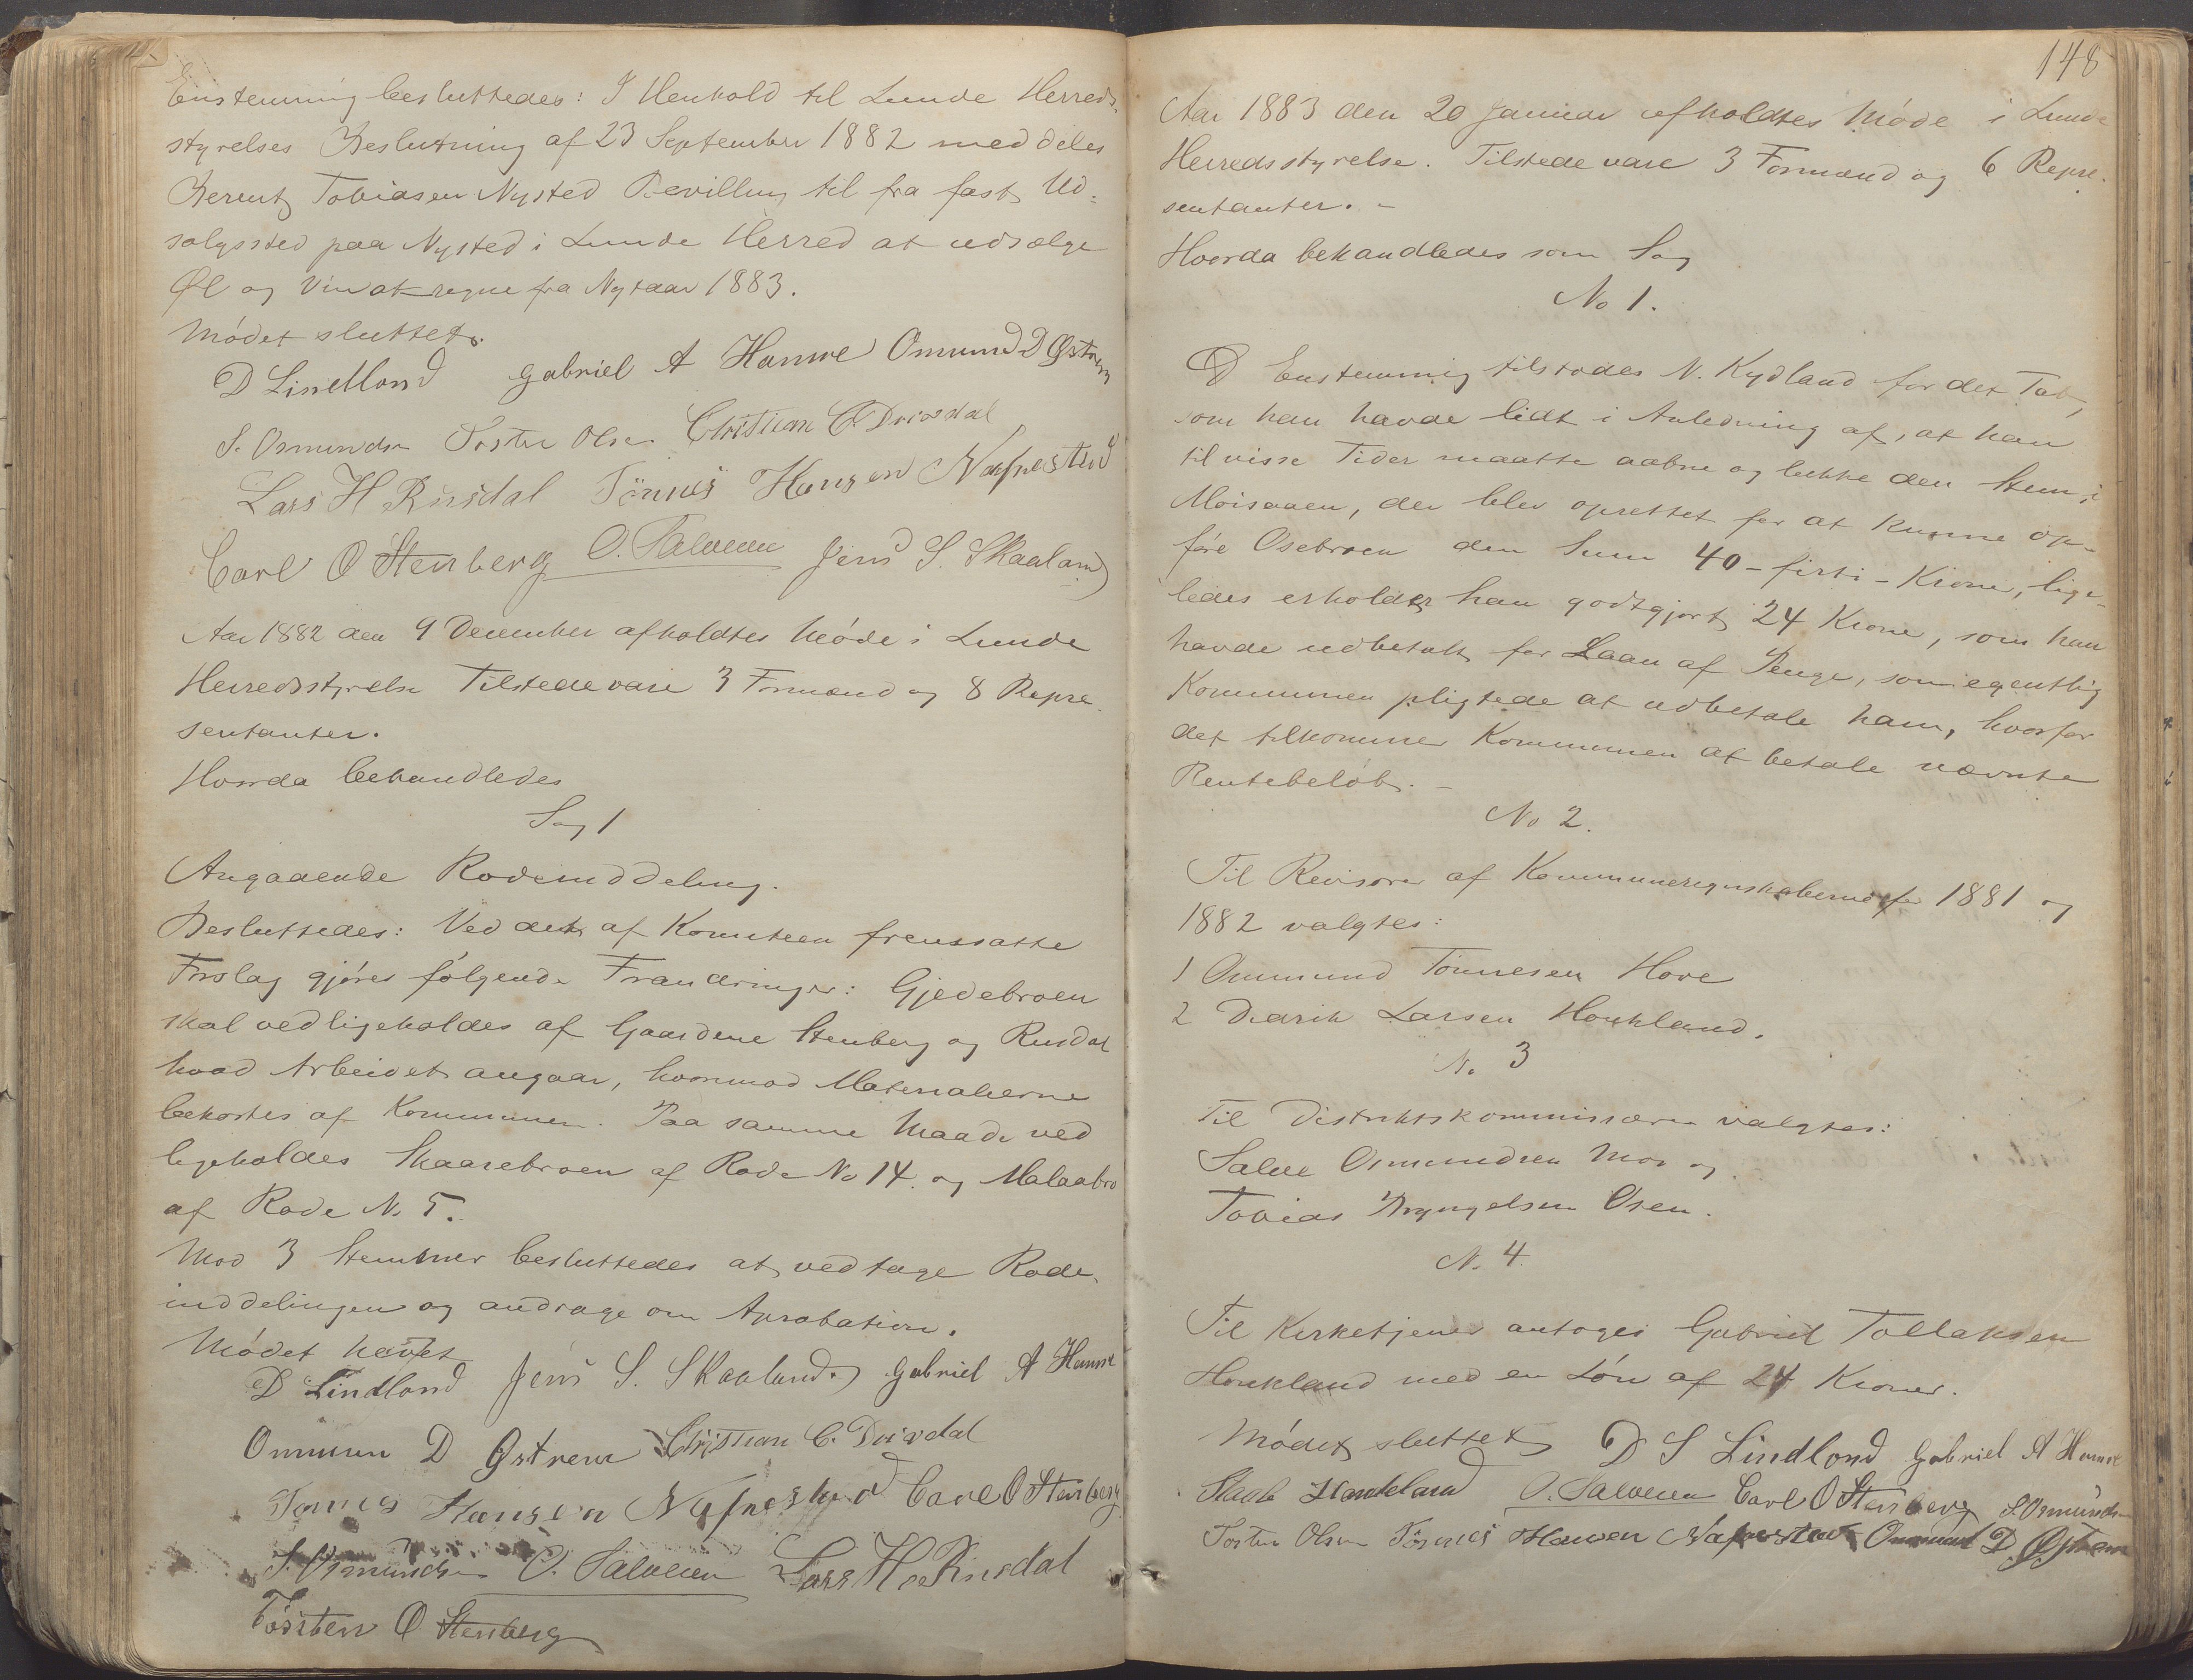 Enstemmig besluttedes: I Henhold til Lunde Herreds-
styrelses Beslutning af 23 September 1882 meddeles
Berent Tobiasen Nysted Bevilling til fra fast Ud-
salgssted paa Nysted i Lunde Herred at udsælge
Øl og Vin at regne fra Nytaar 1883.
Mødet sluttet.
D Lindland Gabriel A Hamre Omund D Østrem
S. Osmundsen Torsten Olsen Christian C Drivdal
Lars H Rusdal Tönnes Hansen Nafnestad
Carl O Stenberg O. Salvesen Jens S. Skaaland
Aar 1882 den 9 December afholdtes Møde i Lunde
Herredsstyrelse Tilstede vare 3 Formænd og 8 Repre-
sentanter.
Hvorda behandledes
Sag 1
Angaaende Rodeinddeling.
Besluttedes: Ved det af Komiteen fremsatte
Forslag gjøres følgende Forandringer: Gjedebroen
skal vedligeholdes af Gaardene Stenberg og Rusdal
hvad Arbeidet angaar, hvorimod Materialierne
bekostes af Kommunen. Paa samme Maade ved
ligeholdes Skaarebroen af Rode No 14. og Malaabro
af Rode N. 5.
Mod 3 Stemmer besluttedes at vedtage Rode-
inddelingen og andrage om Aprobation.
Mødet hævet
D Lindland Jens S. Skaaland. Gabriel A Hamre
Ommun D Østrem Christian C. Drivdal
Tønnes Hansen Nafnestad Carl O Stenberg
S. Osmundsen O. Salvesen Lars H Rusdal
Torsten O Stenberg
148
Aar 1883 den 20 Januar afholdtes Møde i Lunde
Herredsstyrelse. Tilstede vare 3 Formænd og 6 Repre-
sentanter. -
Hvorda behandledes som Sag
No 1.
Enstemmig tilstodes N. Kydland for det Tab,
som han havde lidt i Anledning af, at han
til visse Tider maatte aabne og lukke den Stem i
Moisaaen, der blev oprettet for at kunne op-
føre Osebroen den Sum 40 - firti - Kroner, lige-
ledes erholder han godtgjort 24 Kroner, som han
havde udbetalt for Laan af Penge, som egentlig
Kommunen pligtede at udbetale ham, hvorfor
det tilkommer Kommunen at betale nævnte
Rentebeløb. -
No 2.
Til Revisorer af Kommuneregnskaberne for 1881 og
1882 valgtes:
1 Ommund Tønnesen Hove
2 Didrik Larsen Haukland.
No 3
Til Distriktskommissærer valgtes:
Salve Osmundsen Moi og
Tobias Bryngelsen Osen.
N. 4.
Til Kirketjener antoges Gabriel Tollaksen
Haukland med en Løn af 24 Kroner.
Mødet sluttet D S Lindland Gabriel A Hamre
Haukland O. Salvesen Carl O Stenberg S. Osmundsen
Torsten Olsen Tönnes Hansen Nafnestad Ommund D. Østrem